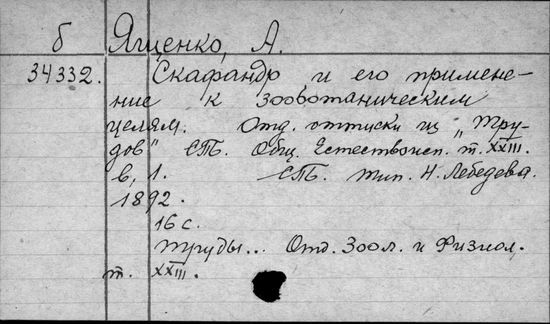 б Ященко, А.
34332. Скафандр и его примене-
ние к зооботаническим
целям. Отд. оттиски из „Тру-
дов" СПБ. Общ. Естествоисп. т. XXIII.
в. 1. СПБ. тип. Н. Лебедева.
1892.
16 с.
Труды... Отд. Зоол. и Физиол.
т. XXIII.